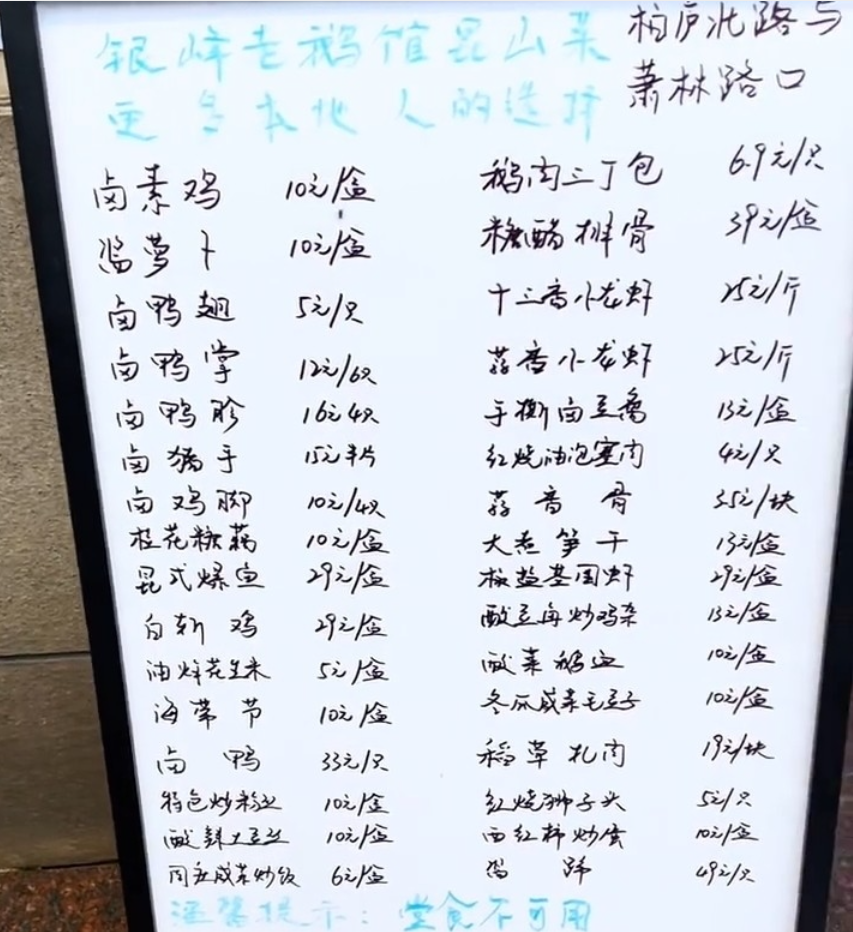 银峰老鹅馆昆山菜
更多本地人的选择
柏庐北路与
萧林路口
卤素鸡 10元/盒
酱萝卜 10元/盒
卤鸭翅 5元/只
卤鸭掌 12元/6只
卤鸭胗 16元4只
卤猪手 15元半片
卤鸡脚 10元/4只
桂花糖藕 10元/盒
昆式爆鱼 29元/盒
白斩鸡 29元/盒
油炸花生米 5元/盒
海带节 10元/盒
卤鸭 33元/只
特色炒粉丝 10元/盒
酸辣土豆丝 10元/盒
肉丝咸菜炒饭 6元/盒
鹅肉三丁包 6.9元/只
糖醋排骨 39元/盒
十三香小龙虾 25元/斤
蒜香小龙虾 25元/斤
手撕卤豆腐 13元/盒
红烧油泡塞肉 4元/只
蒜香骨 35元/块
大煮笋干 13元/盒
椒盐基围虾 29元/盒
酸豆角炒鸡杂 13元/盒
酸菜鹅血 10元/盒
冬瓜咸菜毛豆子 10元/盒
稻草扎肉 19元/块
红烧狮子头 5元/只
西红柿炒蛋 10元/盒
蹄 49元/只
温馨提示：堂食不可用